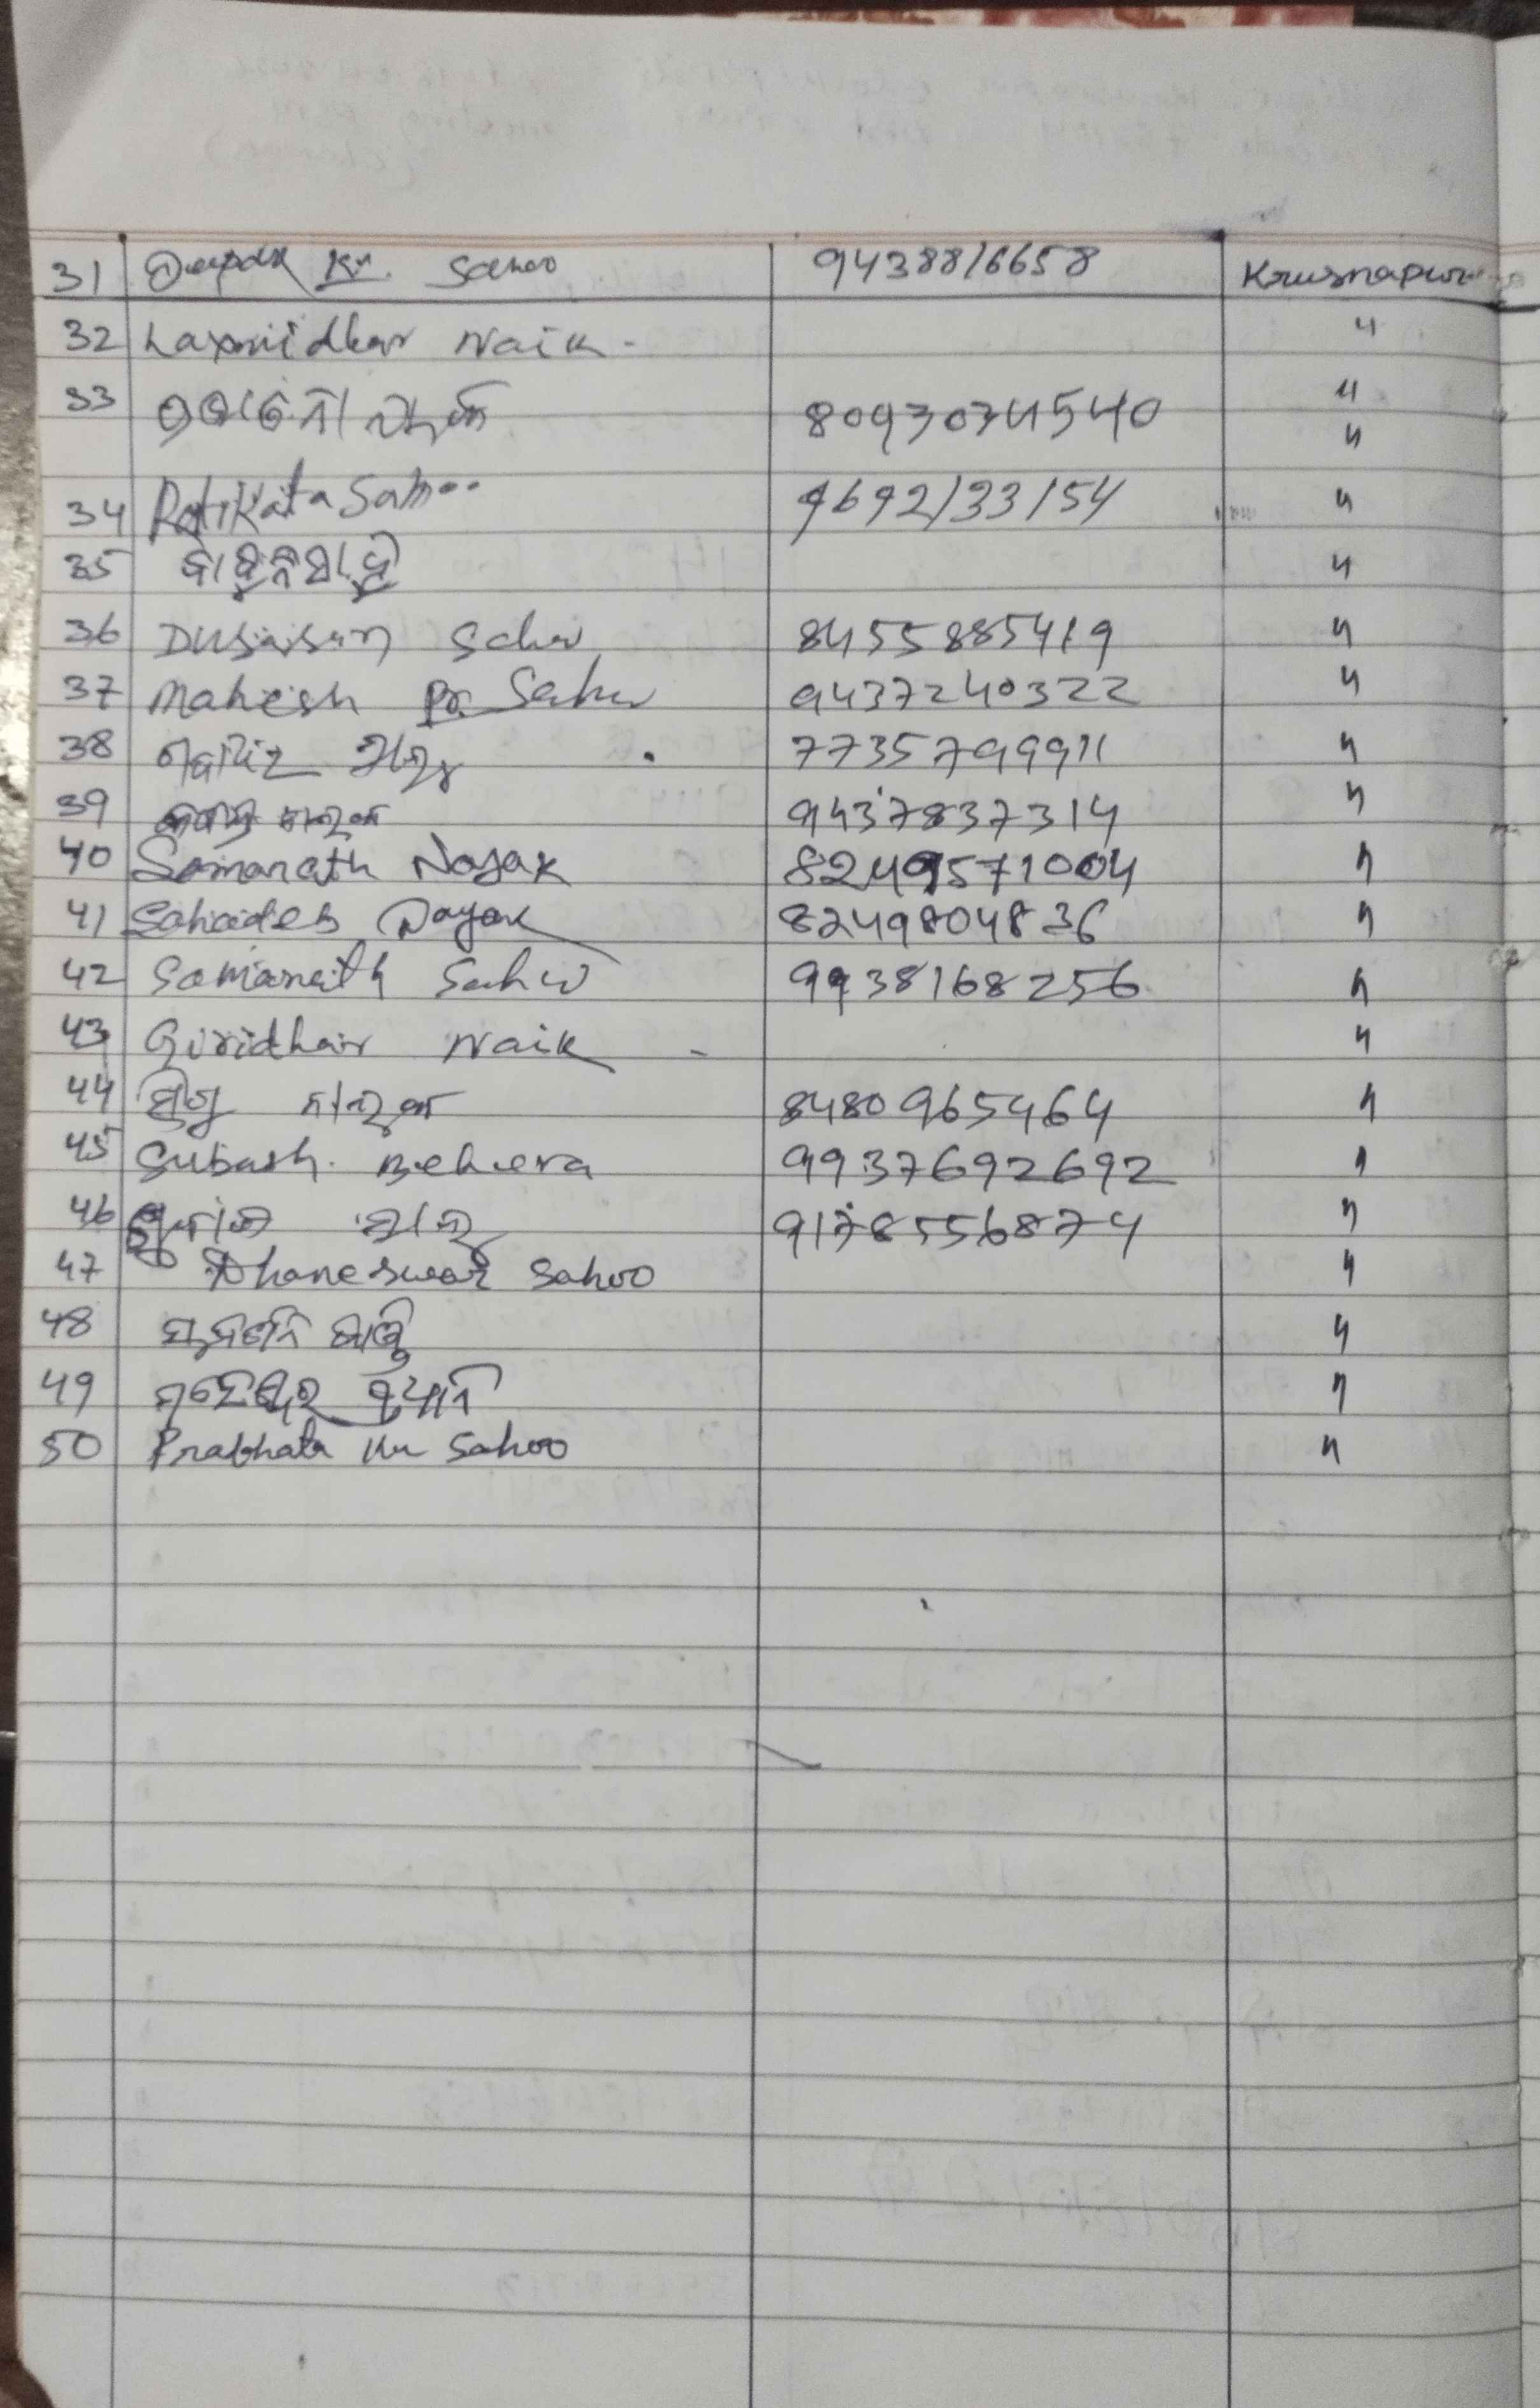 31 Deepak Ku. Sahoo 9438816658 Krusnapur
32 Laxmidhar Naik - "
33 8093034540 "
"
34 Ratikata Sahoo 9692133154 "
35 "
36 Dusasan Sahu 8455885419 "
37 Mahesh Pr. Sahu 9437240322 "
38 ସାହୁ 7735799911 "
39 ନାୟକ 9437837314 "
40 Somanath Nayak 8249571004 "
41 Sahadeb Nayak 8249804836 "
42 Somanath Sahu 9938168256 "
43 Giridhair Naik - "
44 ନାୟକ 8480965464 "
45 Subash. Behera 9937692692 "
46 ସାହୁ 9178556874 "
47 Dhaneswar Sahoo "
48 ସାହୁ "
49 ପ୍ରଧାନ "
50 Prabhata Ku Sahoo "